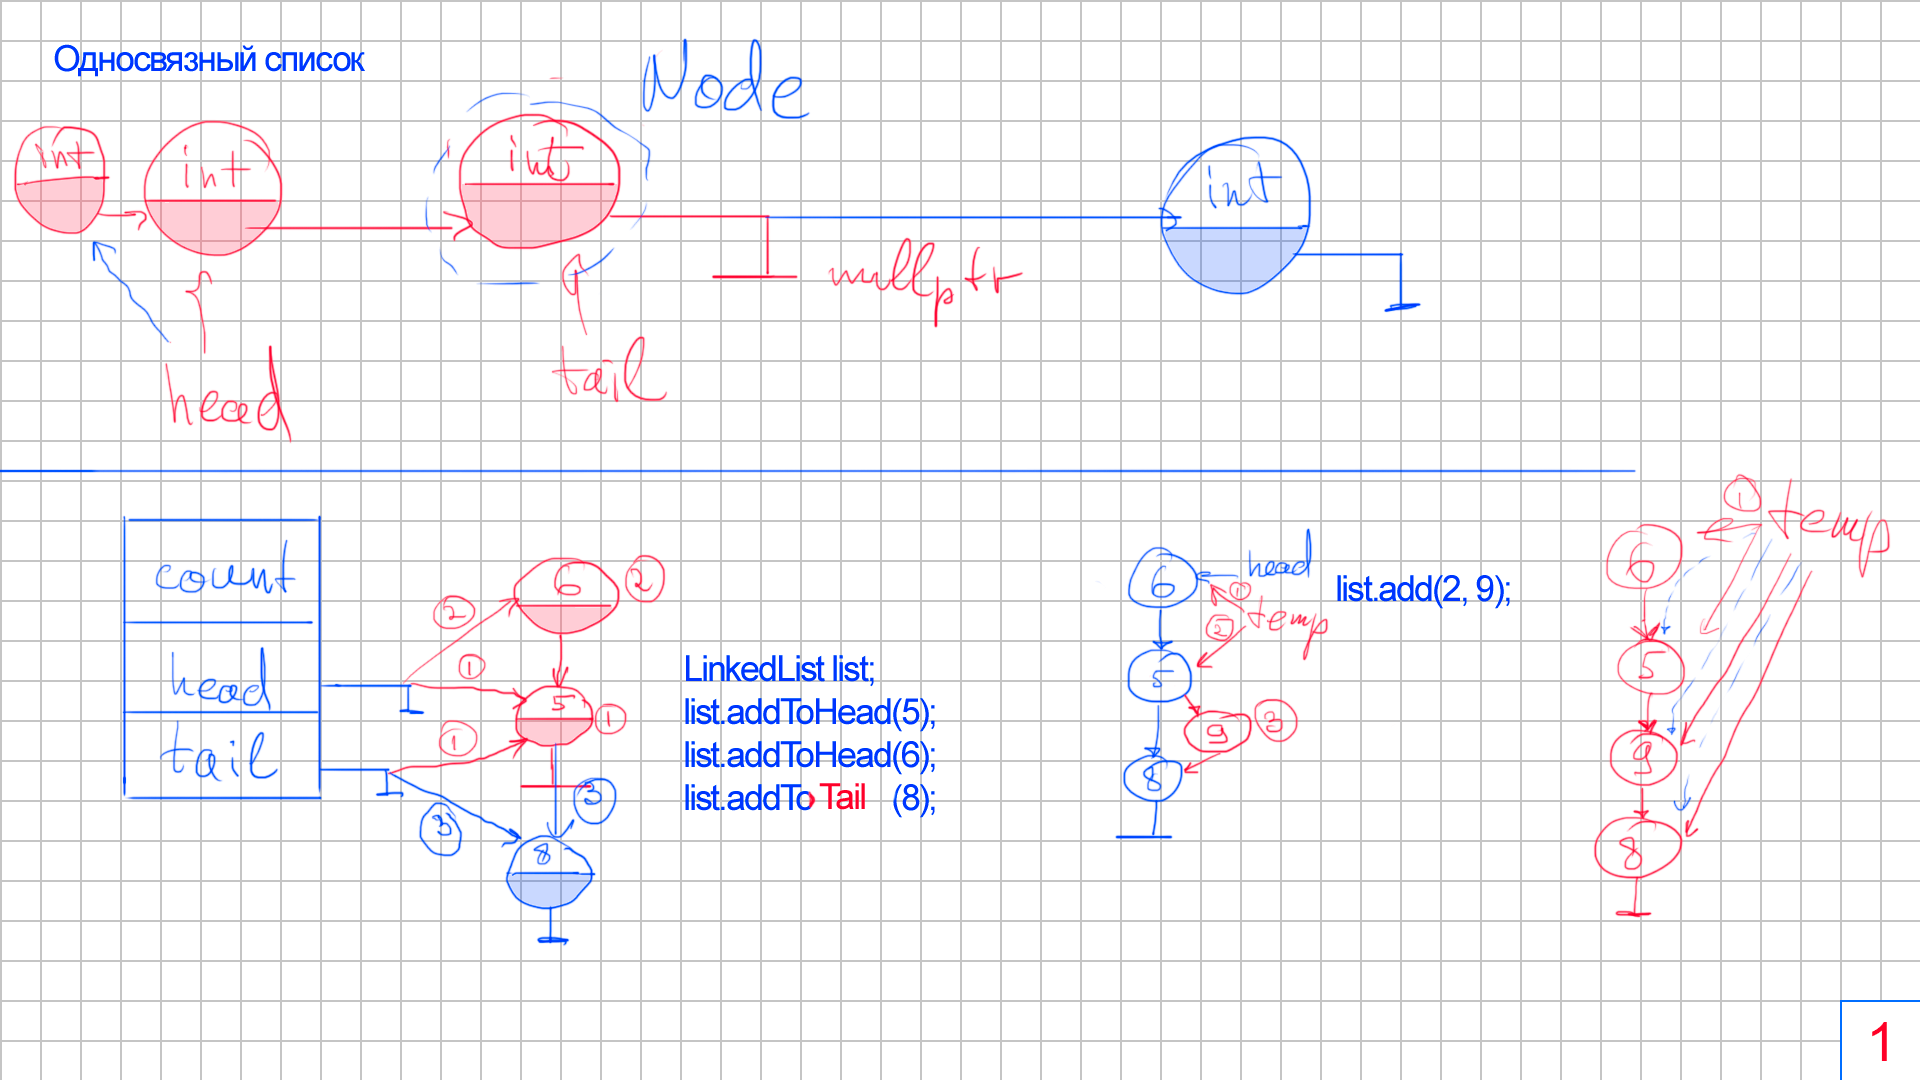 Односвязный список
Node
int
int
int
int
nullptr
head
tail
count
head
tail
2
1
1
3
6
2
5
1
3
8
LinkedList list;
list.addToHead(5);
list.addToHead(6);
list.addTo Tail (8);
6
head
1
temp
2
5
9
3
8
list.add(2, 9);
1
temp
6
5
9
8
1